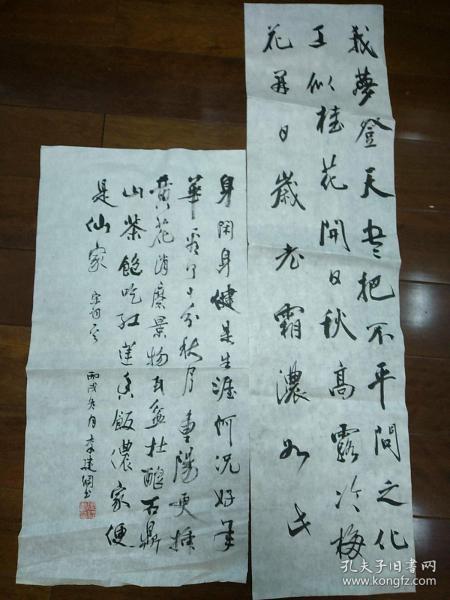 我夢登天尽把不平問之化
工似桂花開日秋高露冷梅
花开日歲老霜濃如此
身閑身健是生涯何况好年
華看了十分秋月重陽更插
黄花消磨景物瓦盆社釀石鼎
山茶飽吃紅蓮香飯儂家便
是仙家 宋詞一首 丙戌冬月李建鋼书
孔夫子旧书网
www.kongfz.com